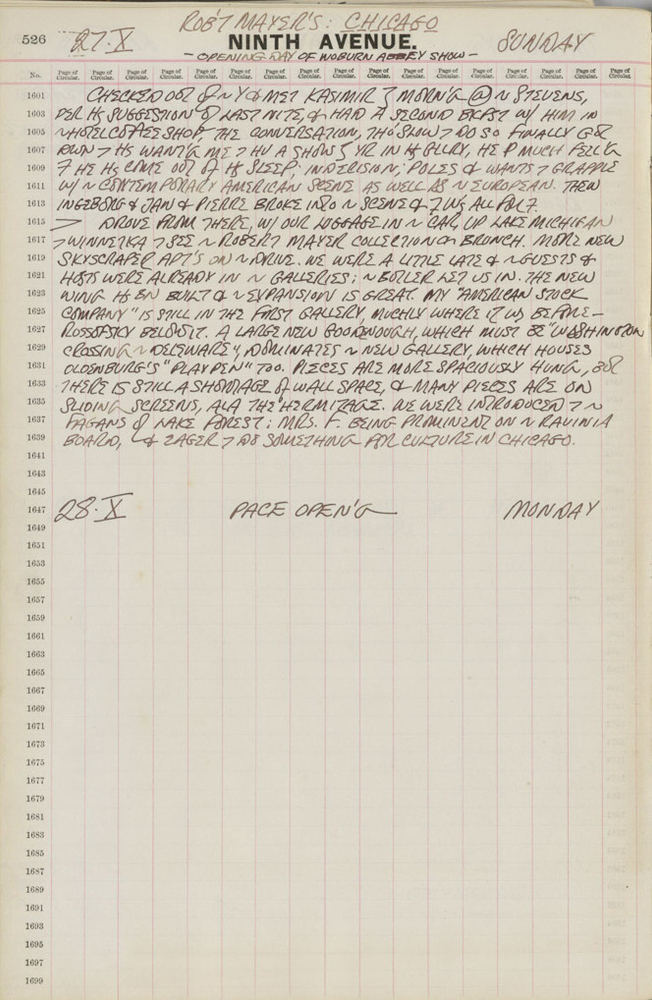 526 27·X ROB'T MAYER'S: CHICAGO SUNDAY
NINTH AVENUE.
— OPENING DAY OF WOBURN ABBEY SHOW —
No. Page of Circular. Page of Circular. Page of Circular. Page of Circular. Page of Circular. Page of Circular. Page of Circular. Page of Circular. Page of Circular. Page of Circular. Page of Circular. Page of Circular. Page of Circular. Page of Circular. Page of Circular.
1601 CHECKED OUT of ~ Y & MET KASIMIR MORN'G @ ~ STEVENS,
1603 PER Hs SUGGESTION of LAST NITE, & HAD A SECOND BKFST W/ HIM IN
1605 ~ HOTEL COFFEE SHOP, THE CONVERSATION, THO' SLOW > DO SO FINALLY GOT
1607 > Hs WANT'G ME > HV A SHOW YR IN GLLRY, HE MUCH FEEL'G
1609 HE Hs COME OUT of SLEEP, INDECISION; POLES & WANTS > GRAPPLE
1611 W/ ~ CONTEMPORARY AMERICAN SCENE AS WELL AS ~ EUROPEAN. THEN
1613 INGEBORG & JAN & PIERRE BROKE INTO ~ SCENE & ALL
1615 > DROVE FROM THERE, W/ OUR LUGGAGE IN ~ CAR, UP LAKE MICHIGAN
1617 > WINNETKA > SEE ~ ROBERT MAYER COLLECTION BRUNCH. MORE NEW
1619 SKYSCRAPER APT'S ON ~ DRIVE. WE WERE A LITTLE LATE & ~ GUESTS &
1621 HOSTS WERE ALREADY IN ~ GALLERIES; ~ BUTLER LET US IN. THE NEW
1623 WING Hs BN BUILT & ~ EXPANSION IS GREAT. MY "AMERICAN STOCK
1625 COMPANY" IS STILL IN THE FIRST GALLERY, MUCHLY WHERE IT WS BEFORE—
1627 ROSOFSKY BELOW IT. A LARGE NEW GOODENOUGH, WHICH MUST BE "WASHINGTON
1629 CROSSING ~ DELEWARE", DOMINATES ~ NEW GALLERY, WHICH HOUSES
1631 OLDENBURG'S "PLAY PEN" TOO. PIECES ARE MORE SPACIOUSLY HUNG, BUT
1633 THERE IS STILL A SHORTAGE of WALL SPACE, & MANY PIECES ARE ON
1635 SLIDING SCREENS, ALA THE HERMITAGE. WE WERE INTRODUCED > ~
1637 FAGANS of LAKE FOREST; MRS. F. BEING PROMINENT ON ~ RAVINIA
1639 BOARD, & EAGER > DO SOMETHING FOR CULTURE IN CHICAGO.
1641
1643
1645
1647 28·X PACE OPEN'G — MONDAY
1649
1651
1653
1655
1657
1659
1661
1663
1665
1667
1669
1671
1673
1675
1677
1679
1681
1683
1685
1687
1689
1691
1693
1695
1697
1699